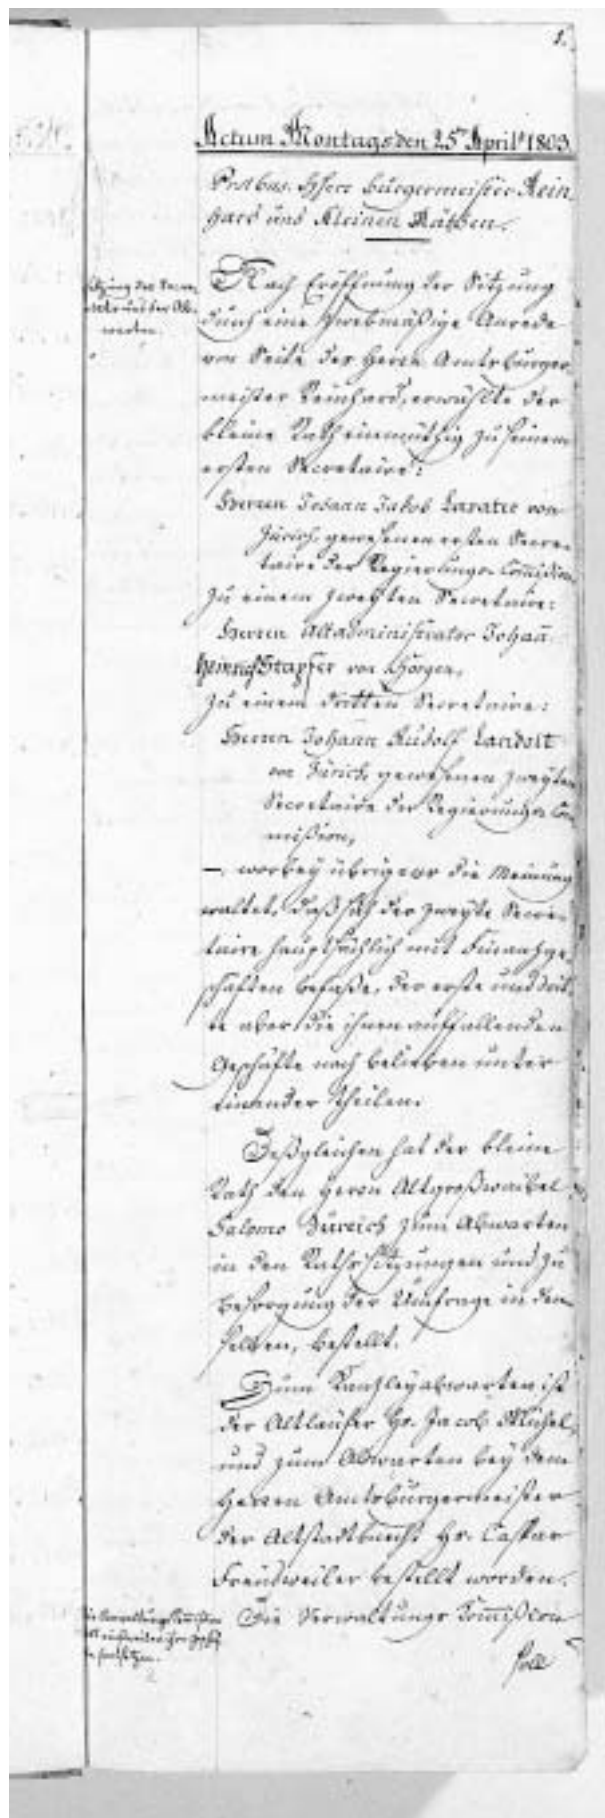 1.
Actum Montags den 25ten April 1803.
Prstbus. Hherr Burgermeister Rein
hard und Kleinen Räthen.
Nach Eröffnung der Sitzung
durch eine zwekmäßige Anrede
von Seite des Herrn Amtsburger
meister Reinhard, erwählte der
kleine Rath einmüthig zu seinem
ersten Secretaire:
Herren Johann Jakob Lavater von
Zürich, gewesenen ersten Secre-
taire der Regierungs-Commission,
Zu einem zweyten Secretaire:
Herren Altadministrator Johann
Heinrich Stapfer von Horgen,
Zu einem dritten Secretaire:
Herren Johann Rudolf Landolt
von Zürich, gewesenen zweyten
Secretaire der Regierungs-Com
mißion,
–, worbey übrigens die Meinung
waltet, daß sich der zweyte Secre-
taire hauptsächlich mit Finanzge-
schäften befaße, der erste und drit-
te aber die ihnen auffallenden
Geschäfte nach belieben unter
einander theilen.
Deßgleichen hat der kleine
Rath den Herrn Altgroßweibel
Salomo Bürich zum Abwarten
in den Rathssitzungen und zu
Besorgung der Umfrage in den-
selben, bestellt.
Zum Kanzleyabwarten ist
der Altläufer Hr. Jacob Michel,
und zum Abwarten bey dem
Herren Amtsburgermeister
der Altstadtknecht Hr. Caspar
Freudweiler bestellt worden.
Die Verwaltungscommißion
soll einsweilen ihre Geschäf
te fortsetzen.
Die Verwaltungs Commißion
soll